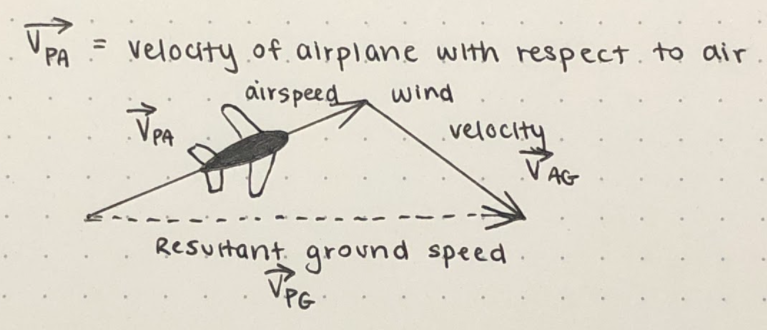 V⃗PA = velocity of airplane with respect to air
airspeed wind
V⃗PA
velocity
V⃗AG
Resultant ground speed
V⃗PG